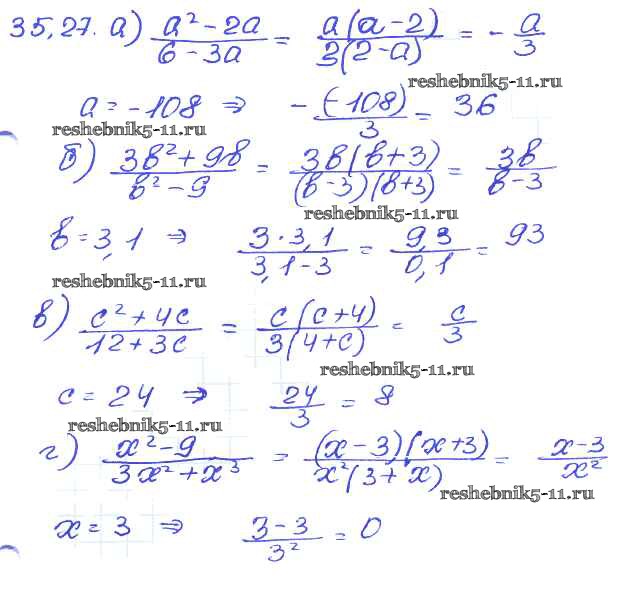 35.27. а) (a² - 2a)/(6 - 3a) = a(a - 2)/3(2 - a) = - a/3
reshebnik5-11.ru
a = -108 ⇒ - (-108)/3 = 36
reshebnik5-11.ru
б) (3b² + 9b)/(b² - 9) = 3b(b + 3)/(b - 3)(b + 3) = 3b/(b - 3)
reshebnik5-11.ru
b = 3,1 ⇒ (3 · 3,1)/(3,1 - 3) = 9,3/0,1 = 93
reshebnik5-11.ru
в) (c² + 4c)/(12 + 3c) = c(c + 4)/3(4 + c) = c/3
reshebnik5-11.ru
c = 24 ⇒ 24/3 = 8
reshebnik5-11.ru
г) (x² - 9)/(3x² + x³) = (x - 3)(x + 3)/x²(3 + x) = (x - 3)/x²
reshebnik5-11.ru
x = 3 ⇒ (3 - 3)/3² = 0